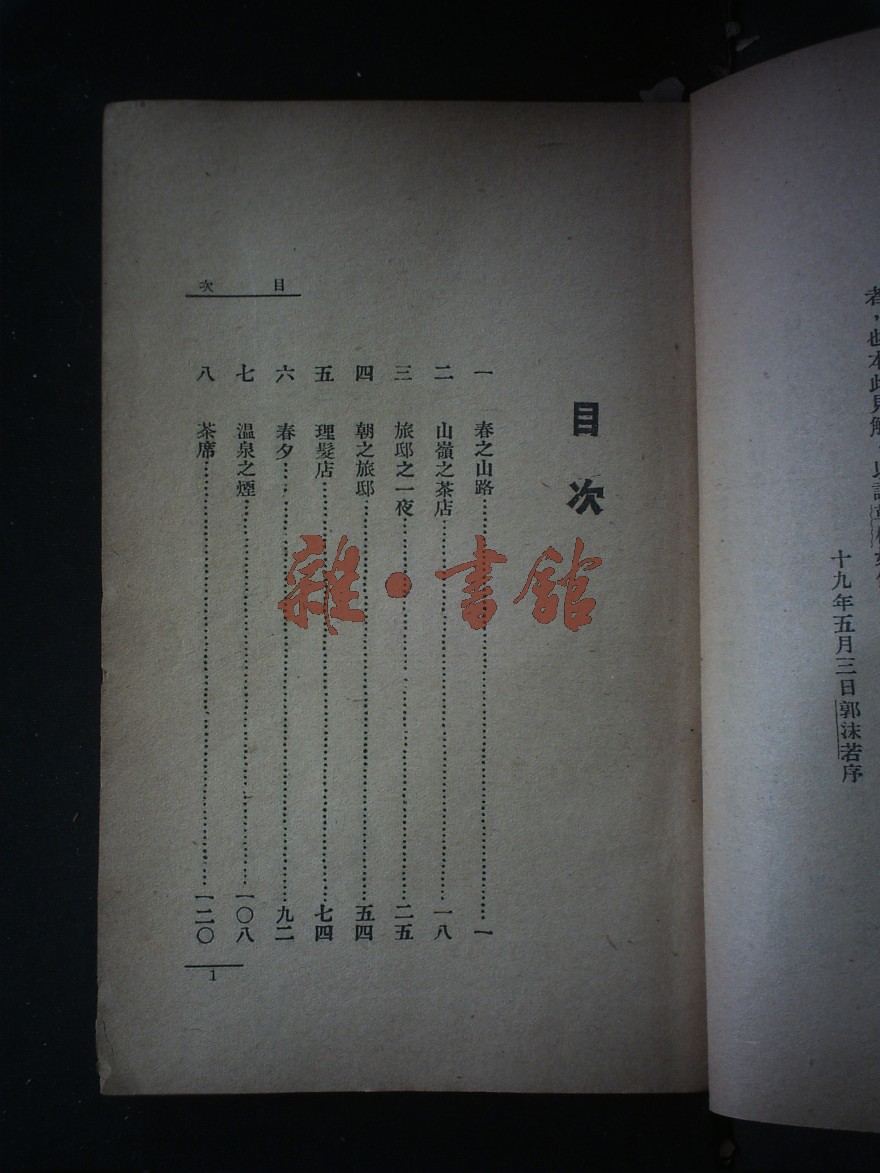 者，也本此見解，以
十九年五月三日郭沫若序
目次
目次
一 春之山路 一
二 山嶺之茶店 一八
三 旅邸之一夜 二五
四 朝之旅邸 五四
五 理髮店 七四
六 春夕 九二
七 温泉之煙 一〇八
八 茶席 一二〇
1
雜·書館